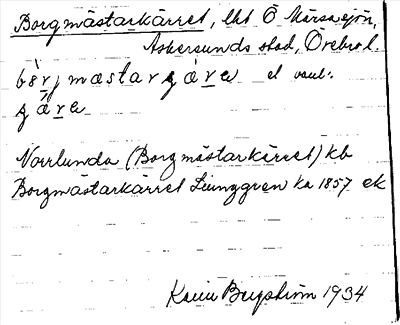 Borgmästarkärret, lht Ö Kärrasjön,
Askersunds stad, Örebro l.
bòrjmæstarɕǽrə el vanl.
ɕǽrə
Norrlunda (Borgmästarkärret) kb
Borgmästarkärret Ljunggren ka 1857 ek
Karin Bergström 1934